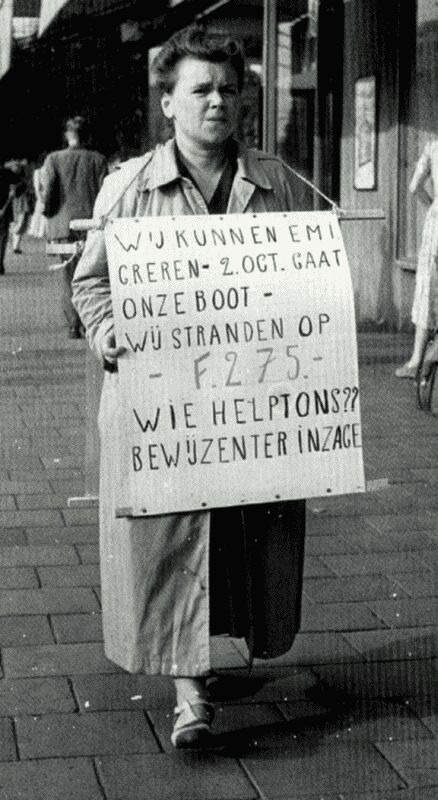 WIJ KUNNEN EMI
GREREN- 2.OCT. GAAT
ONZE BOOT -
WIJ STRANDEN OP
- F.275.-
WIE HELPTONS??
BEWIJZENTER INZAGE